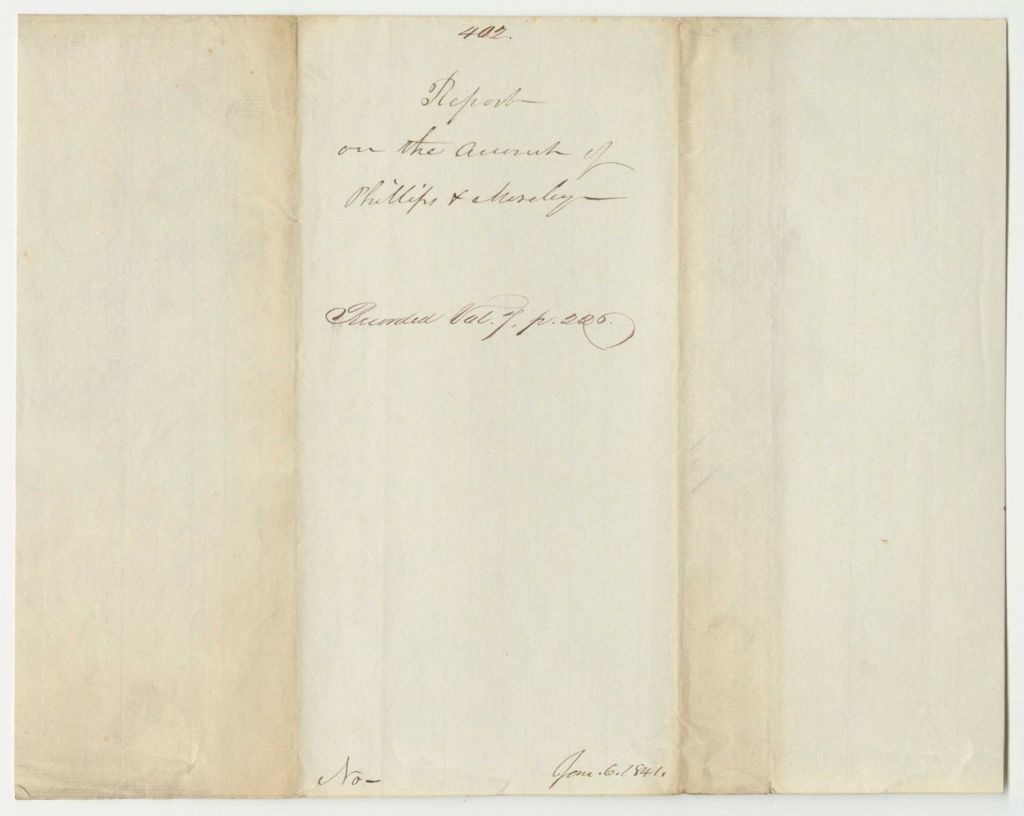 402.
Report
on the account of
Phillips & Moseley
Recorded Vol. 7, p. 
No-
Jan. 6. 1841.